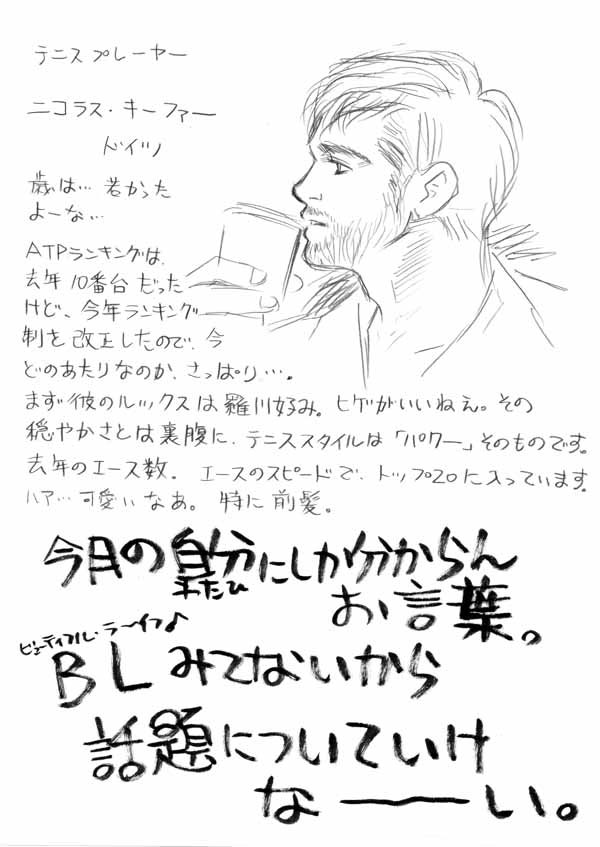 テニスプレーヤー
ニコラス・キーファー
ドイツ
歳は…若かった
よーな…
ATPランキングは、
去年10番台だった
けど、今年ランキング
制を改正したので、今
どのあたりなのか、さっぱり…。
まず彼のルックスは羅川好み。ヒゲがいいねぇ。その
穏やかさとは裏腹に、テニススタイルは「パワー」そのものです。
去年のエース数。エースのスピードで、トップ20に入っています。
ハア…可愛いなあ。特に前髪。
今月の自分にしか分からん
わたひ
お言葉。
ビューティフル・ラーイフ♪
BLみてないから
話題についていけ
な――い。